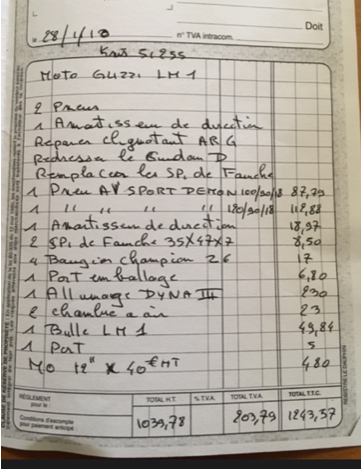 Doit
le 28/1/18
n° TVA intracom.
Kms 51255
Moto Guzzi LM 1
2 Pneus
1 Amortisseur de direction
Reparer clignotant AR G
Redresser le Guidon D
Remplacer les SPi de Fourche
1 Pneu AV SPORT DEMON 100/90/18 87,79
1 " " " " 120/90/18 112,88
1 Amortisseur de direction 18,97
2 SPi de Fourche 35X47X7 8,50
4 Bougies champion 26 17
1 Port emballage 6,80
1 Allumage DYNA III 230
2 chambre a air 23
1 Bulle LM 1 49,84
1 Port 5
MO 12H X 40€ HT 480
RÈGLEMENT
pour le :
Conditions d'escompte
pour paiement anticipé :
TOTAL H.T.
% T.V.A.
TOTAL T.V.A.
TOTAL T.T.C.
1039,78
203,79
1243,57